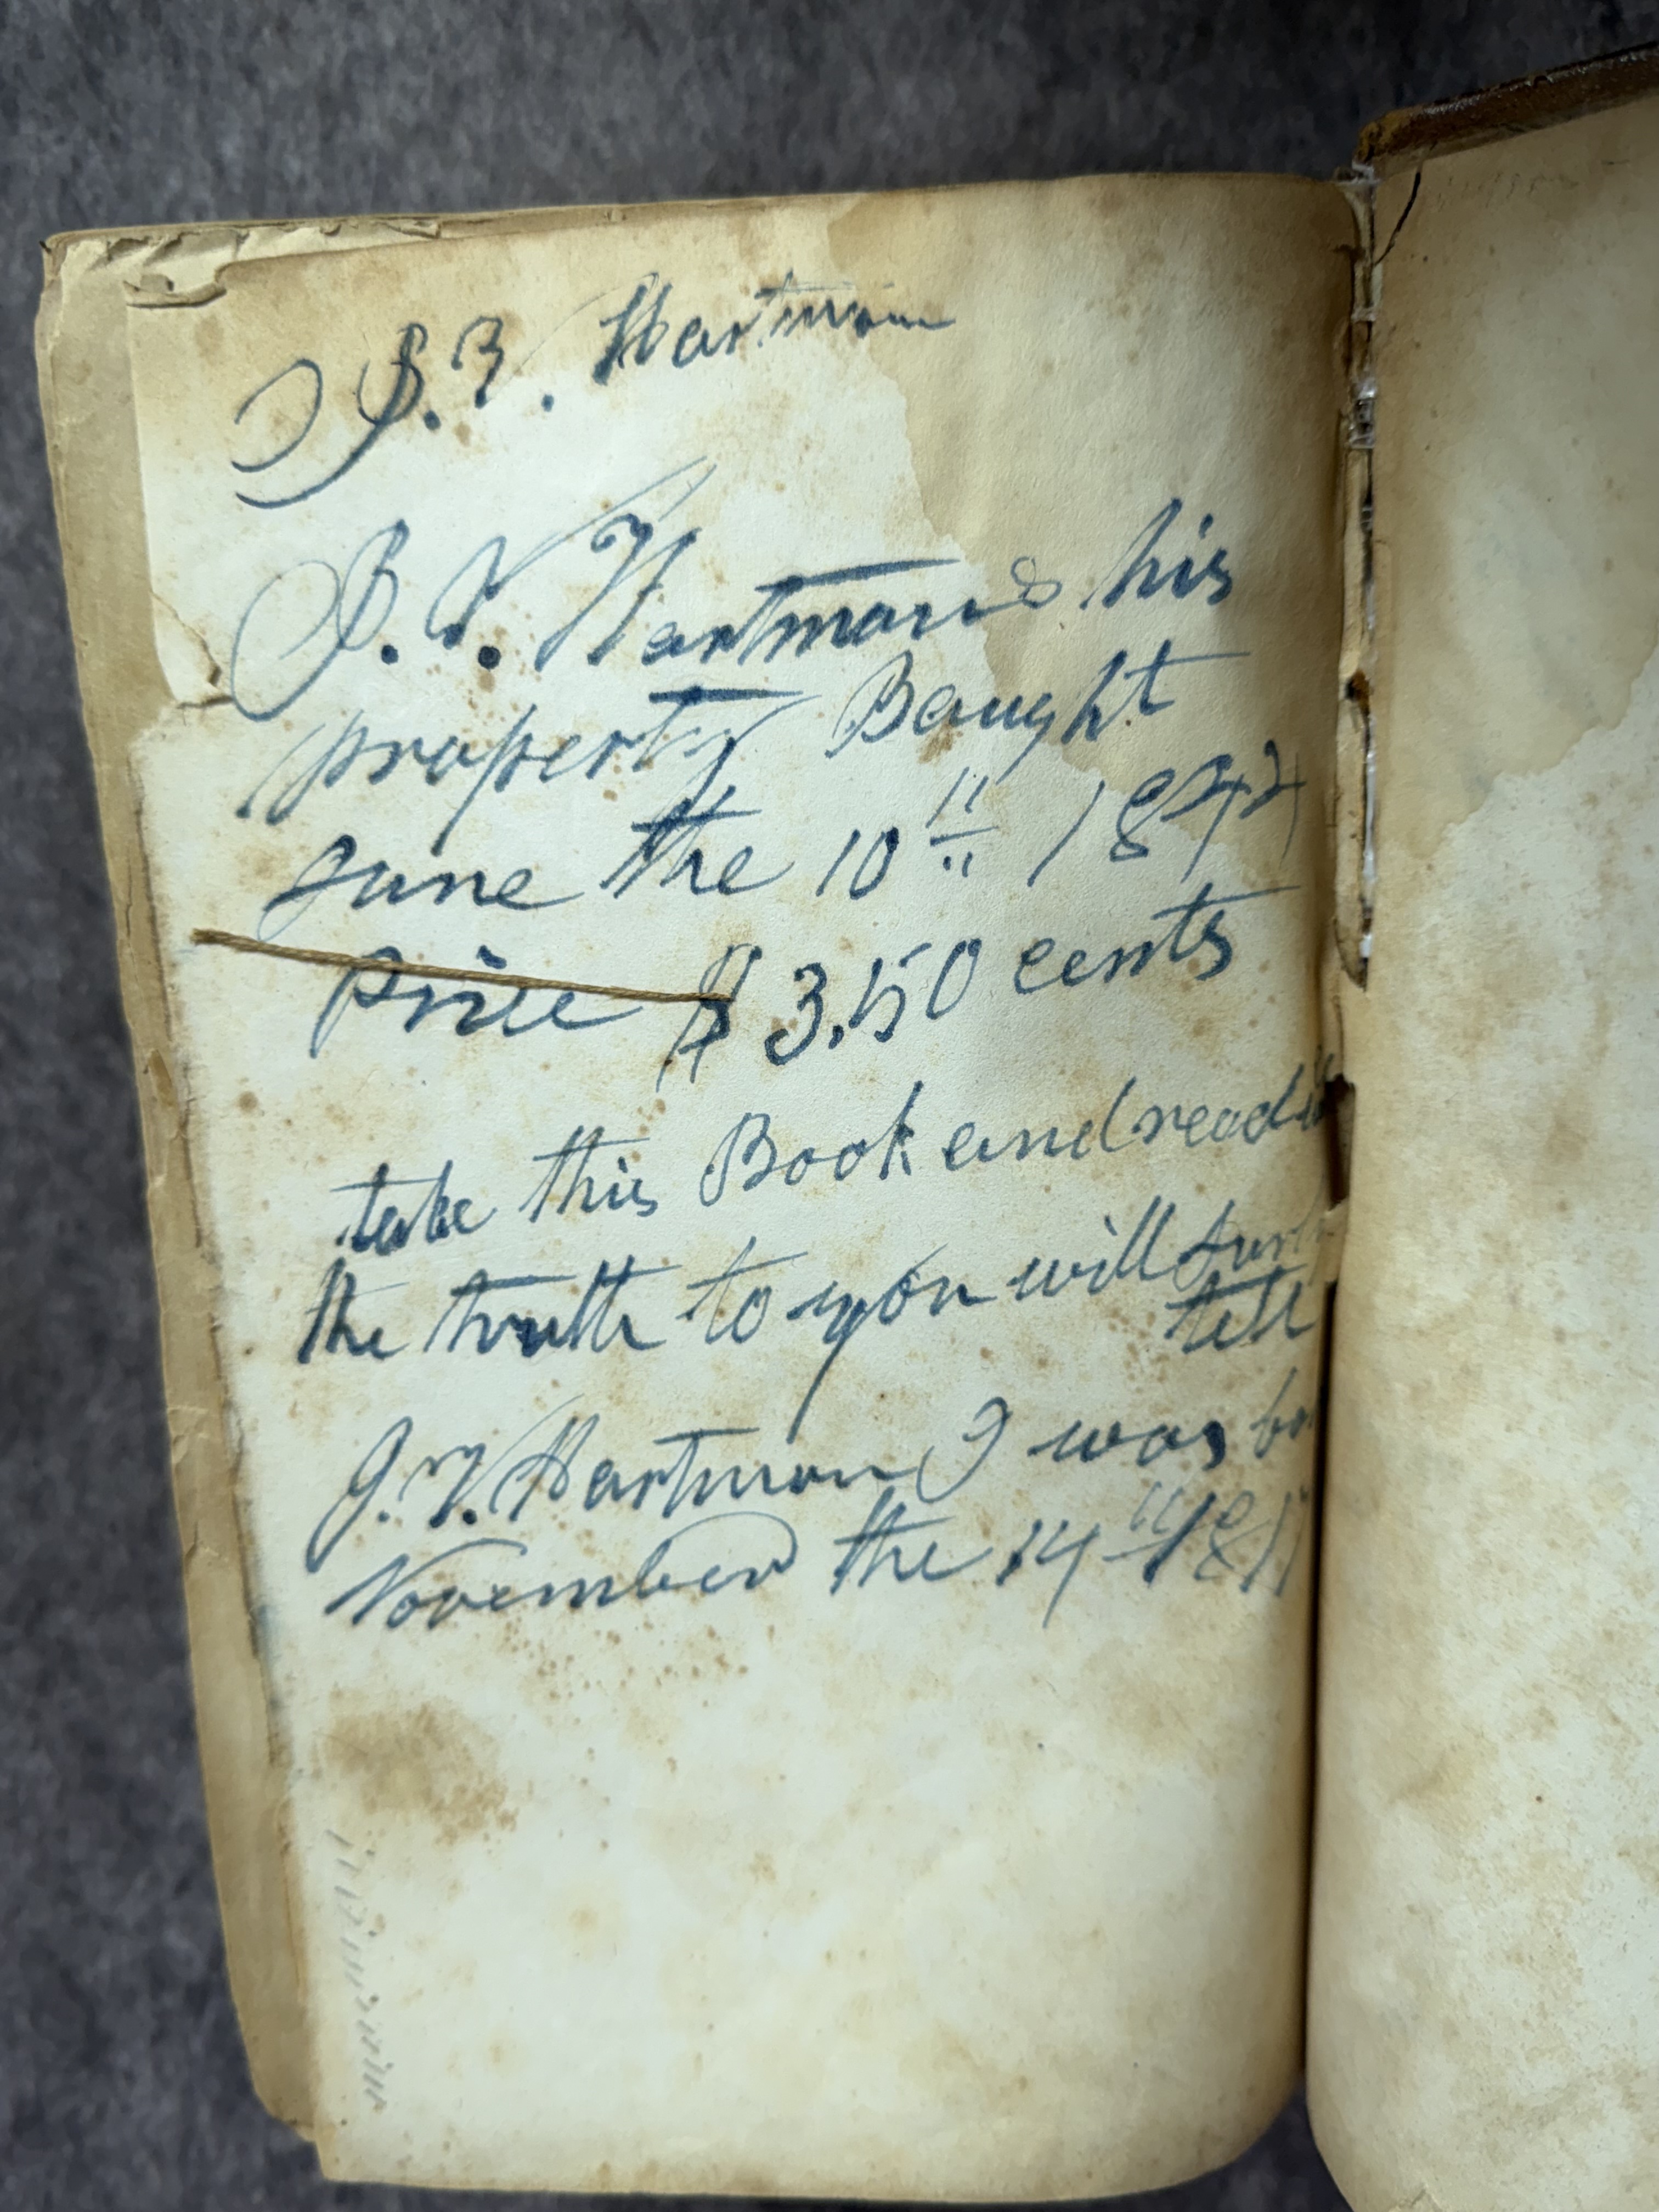 Hartman
Hartmans his
property Baught
June the 10 " 1872
Price $ 3.50 cents
take this Book and read it
the truth to you will
tell
J. V. Hartman I was
November the 14 "